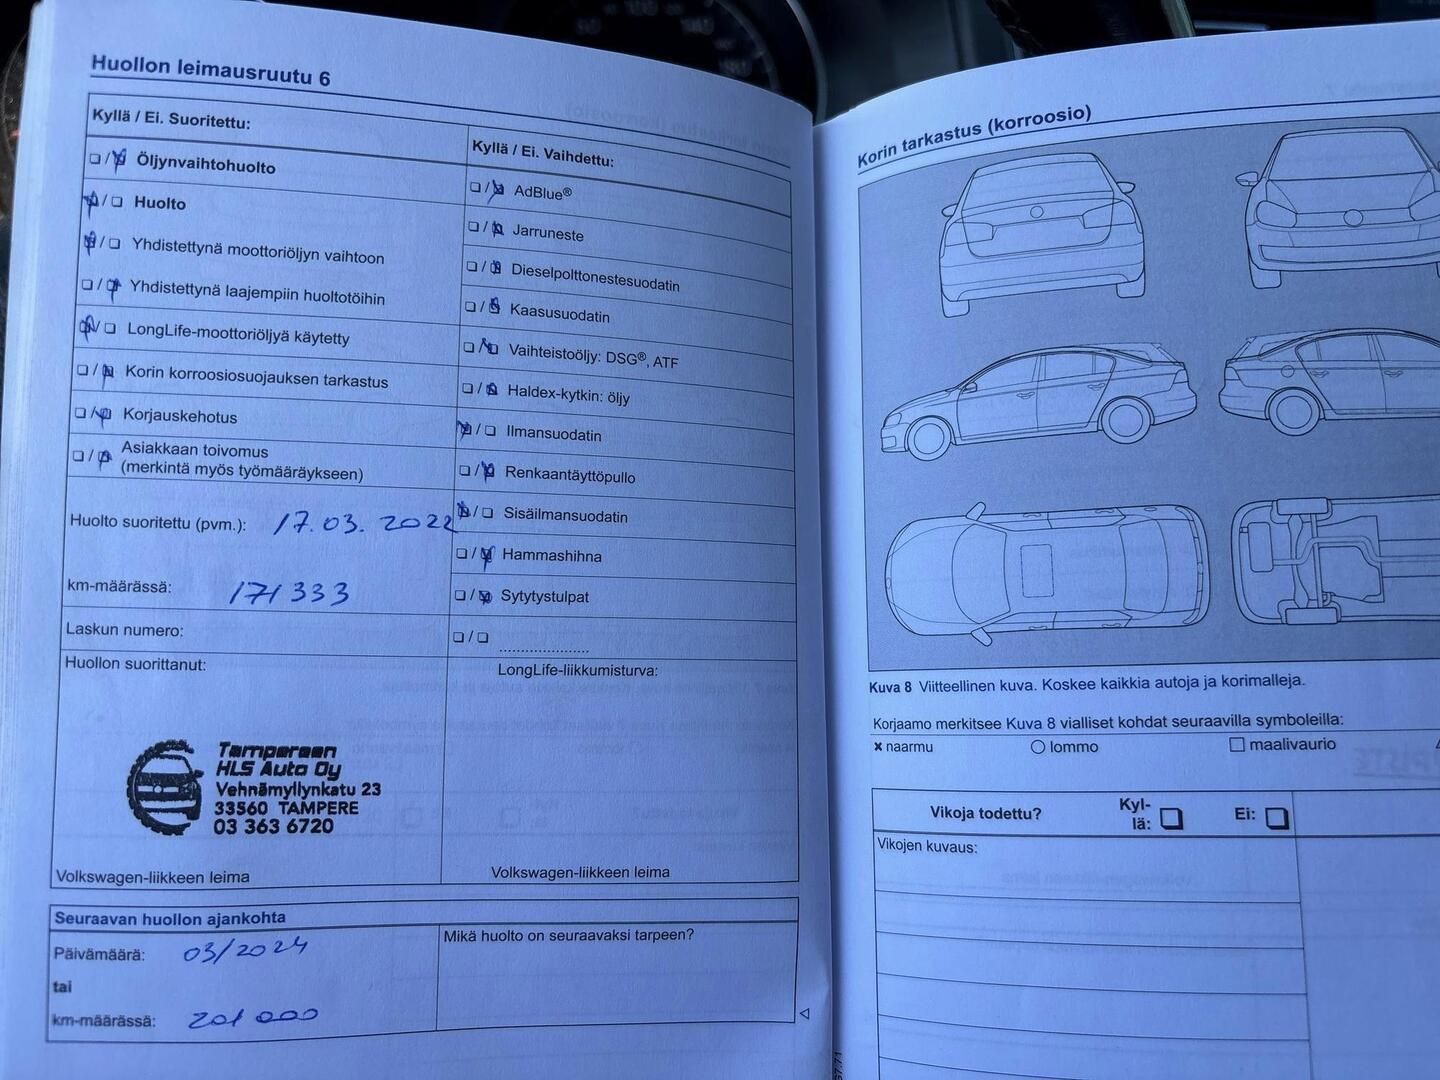 Huollon leimausruutu 6
Kyllä / Ei. Suoritettu:
/ Öljynvaihtohuolto
/ Huolto
/ Yhdistettynä moottoriöljyn vaihtoon
/ Yhdistettynä laajempiin huoltotöihin
/ LongLife-moottoriöljyä käytetty
/ Korin korroosiosuojauksen tarkastus
/ Korjauskehotus
/ Asiakkaan toivomus
(merkintä myös työmääräykseen)
Huolto suoritettu (pvm.): 17.03.2022
km-määrässä: 171333
Laskun numero:
Huollon suorittanut:
Tampereen
HLS Auto Oy
Vehnämyllynkatu 23
33560 TAMPERE
03 363 6720
Volkswagen-liikkeen leima
Kyllä / Ei. Vaihdettu:
/ AdBlue®
/ Jarruneste
/ Dieselpolttonestesuodatin
/ Kaasusuodatin
/ Vaihteistoöljy: DSG®, ATF
/ Haldex-kytkin: öljy
/ Ilmansuodatin
/ Renkaantäyttöpullo
/ Sisäilmansuodatin
/ Hammashihna
/ Sytytystulpat
/ ......................
LongLife-liikkumisturva:
Volkswagen-liikkeen leima
Seuraavan huollon ajankohta
Päivämäärä: 03/2024
tai
km-määrässä: 201 000
Mikä huolto on seuraavaksi tarpeen?
Korin tarkastus (korroosio)
Kuva 8 Viitteellinen kuva. Koskee kaikkia autoja ja korimalleja.
Korjaamo merkitsee Kuva 8 vialliset kohdat seuraavilla symboleilla:
× naarmu ○ lommo □ maalivaurio
Vikoja todettu? Kyl-
lä: Ei:
Vikojen kuvaus: